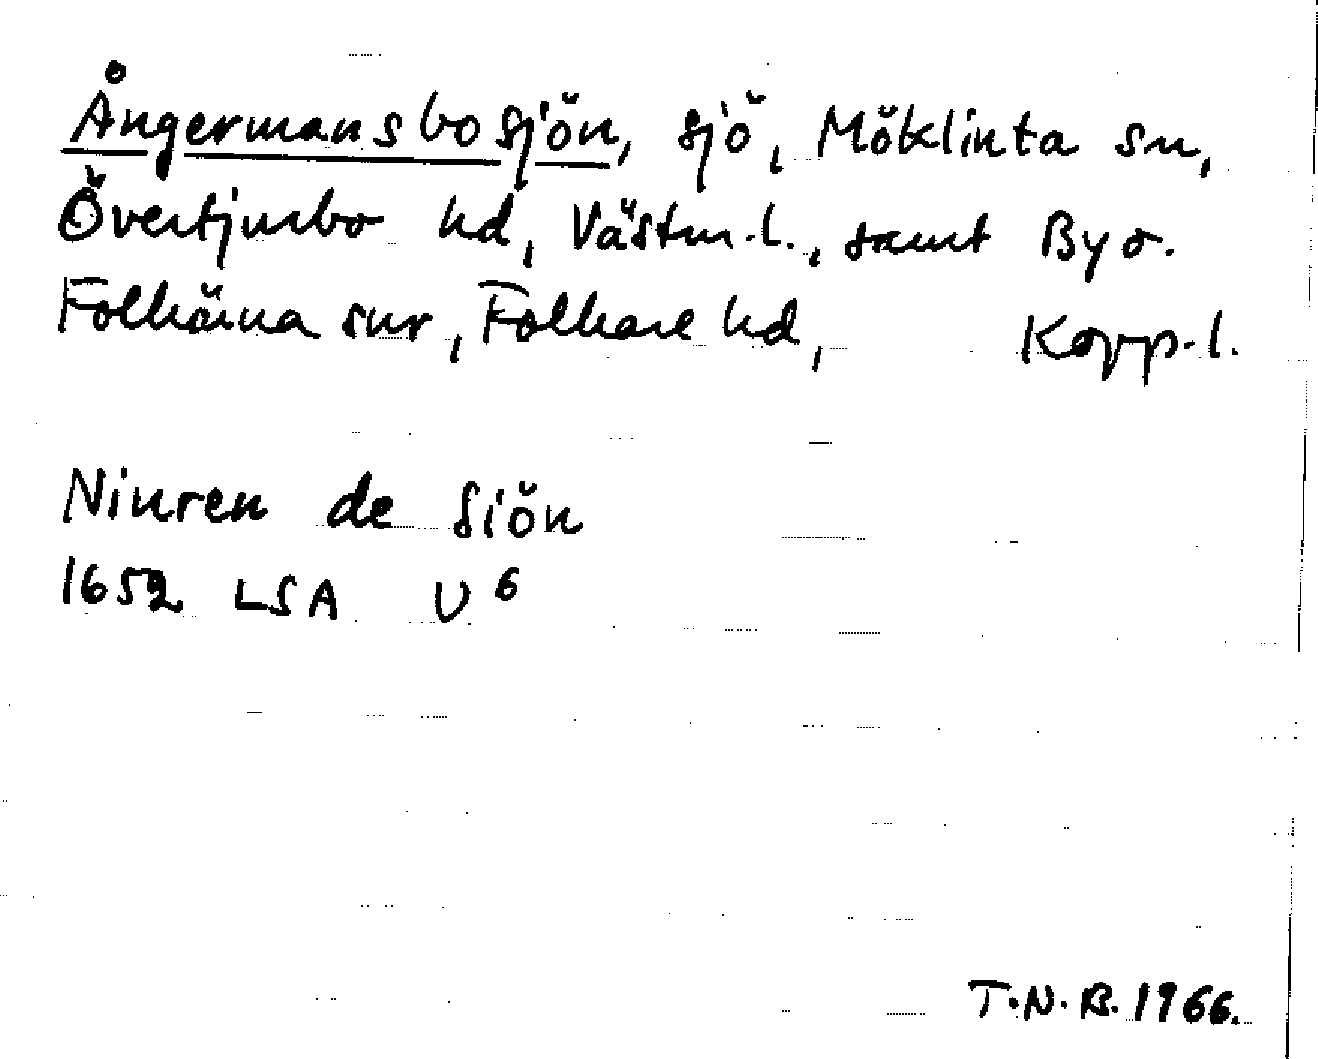 Ångermansbosjön, sjö, Möklinta sn,
Övertjurbo hd, Västm.l., samt By o.
Folkärna snr, Folkare hd, Kopp.l.
Niuren de Siön
1652 LSA U6
T.N.B. 1966.